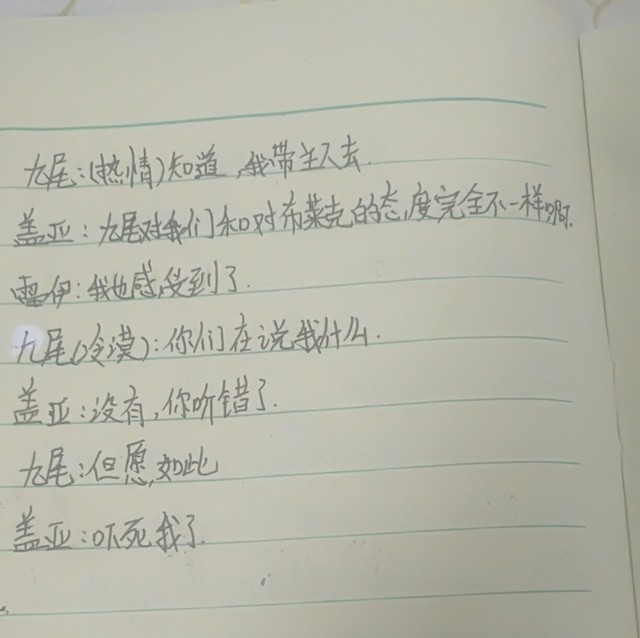 九尾:(热情)知道,我带主人去.
盖亚:九尾对我们和对布莱克的态度完全不一样啊.
雷伊:我也感受到了.
九尾(冷漠):你们在说我什么.
盖亚:没有,你听错了.
九尾:但愿如此
盖亚:吓死我了.